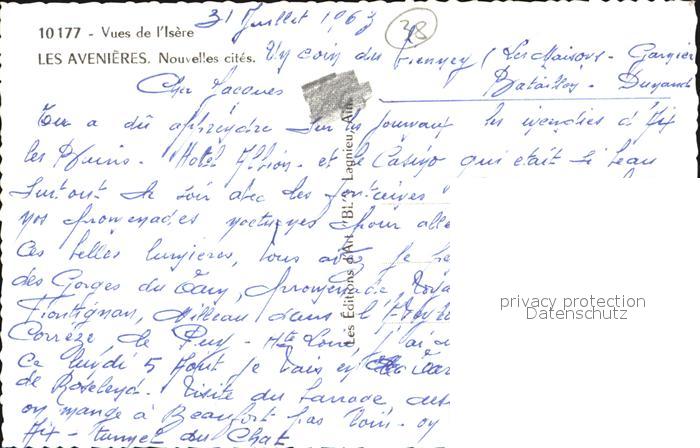 31 Juillet 1967
38
10177 - Vues de l'Isère
LES AVENIÈRES. Nouvelles cités.
Un coin du (Les Maisons - Garnier
Bataillon - Durand
Cher Jacques
Tu a dû apprendre sur les journaux les incendies d'Aix
les Bains. Hotel Albion - et le Casino qui était si beau
surtout le soir avec les
nos promenades nocturnes pour alle
Ces belles lumières, tous je
des Gorges du Tarn, promenade,
Frontignan, Milleau dans l'
Corrèze, le Puy - Hte Loire, j'ai
Ce lundi 5 Août je vais
de Roselend. Visite du barrage
on mange à Beaufort pas loin - on
Aix - tunnel du Chat
Les Éditions d'Art "BL", Lagnieu, Ain
privacy protection
Datenschutz